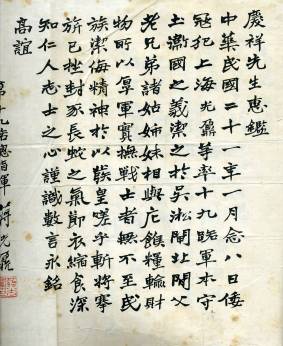 慶祥先生惠鑑
中華民國二十一年一月念八日倭
寇犯上海光鼐等率十九路軍本守
土衞國之義禦之於吳淞閘北父
老兄弟諸姑姊妹相與庀餱糧輸財
物所以厚軍實撫戰士者無不至我
族禦侮精神於以嗟乎斬將搴
旂已挫封豕長蛇之氣節衣縮食深
知仁人志士之心謹識數言永銘
高誼
第十九路總指揮蔣光鼐